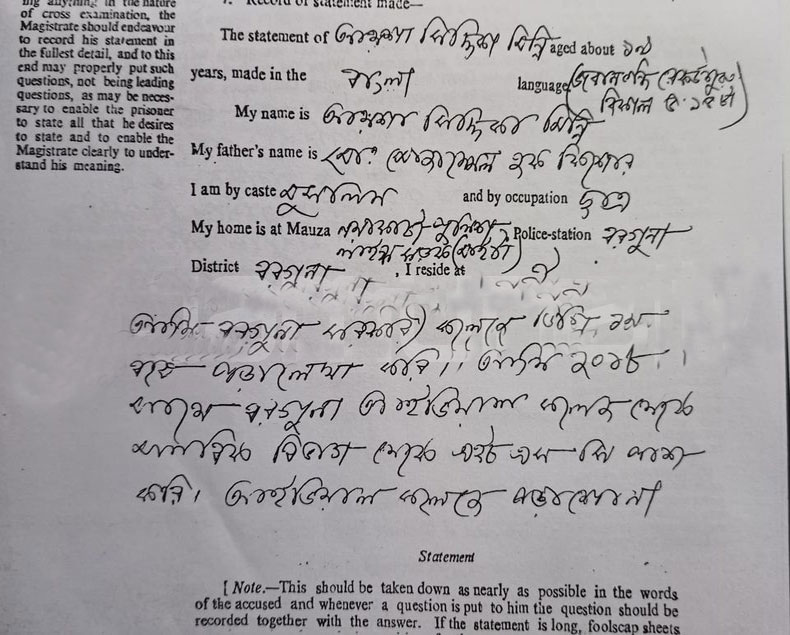 ing anything in the nature
of cross examination, the
Magistrate should endeavour
to record his statement in
the fullest detail, and to this
end may properly put such
questions, not being leading
questions, as may be neces-
sary to enable the prisoner
to state all that he desires
to state and to enable the
Magistrate clearly to under-
stand his meaning.
7. Record of statement made—
The statement of আয়শা সিদ্দিকা মিন্নি aged about ১৯
years, made in the বাংলা language
বিকাল
My name is আয়শা সিদ্দিকা মিন্নি
My father's name is মোঃ মোজাম্মেল হক কিশোর
I am by caste মুসলিম and by occupation ছাত্রী
My home is at Mauza Police-station বরগুনা
District বরগুনা, I reside at ঐ
আমি বরগুনা সরকারি কলেজে ডিগ্রি ১ম
বর্ষে পড়ালেখা করি। আমি ২০১৮
সালে বরগুনা আইডিয়াল কলেজ থেকে
মানবিক বিভাগ থেকে এইচ এস সি পাশ
করি। আইডিয়াল কলেজে পড়াশোনা
Statement
[ Note.—This should be taken down as nearly as possible in the words
of the accused and whenever a question is put to him the question should be
recorded together with the answer. If the statement is long, foolscap sheets